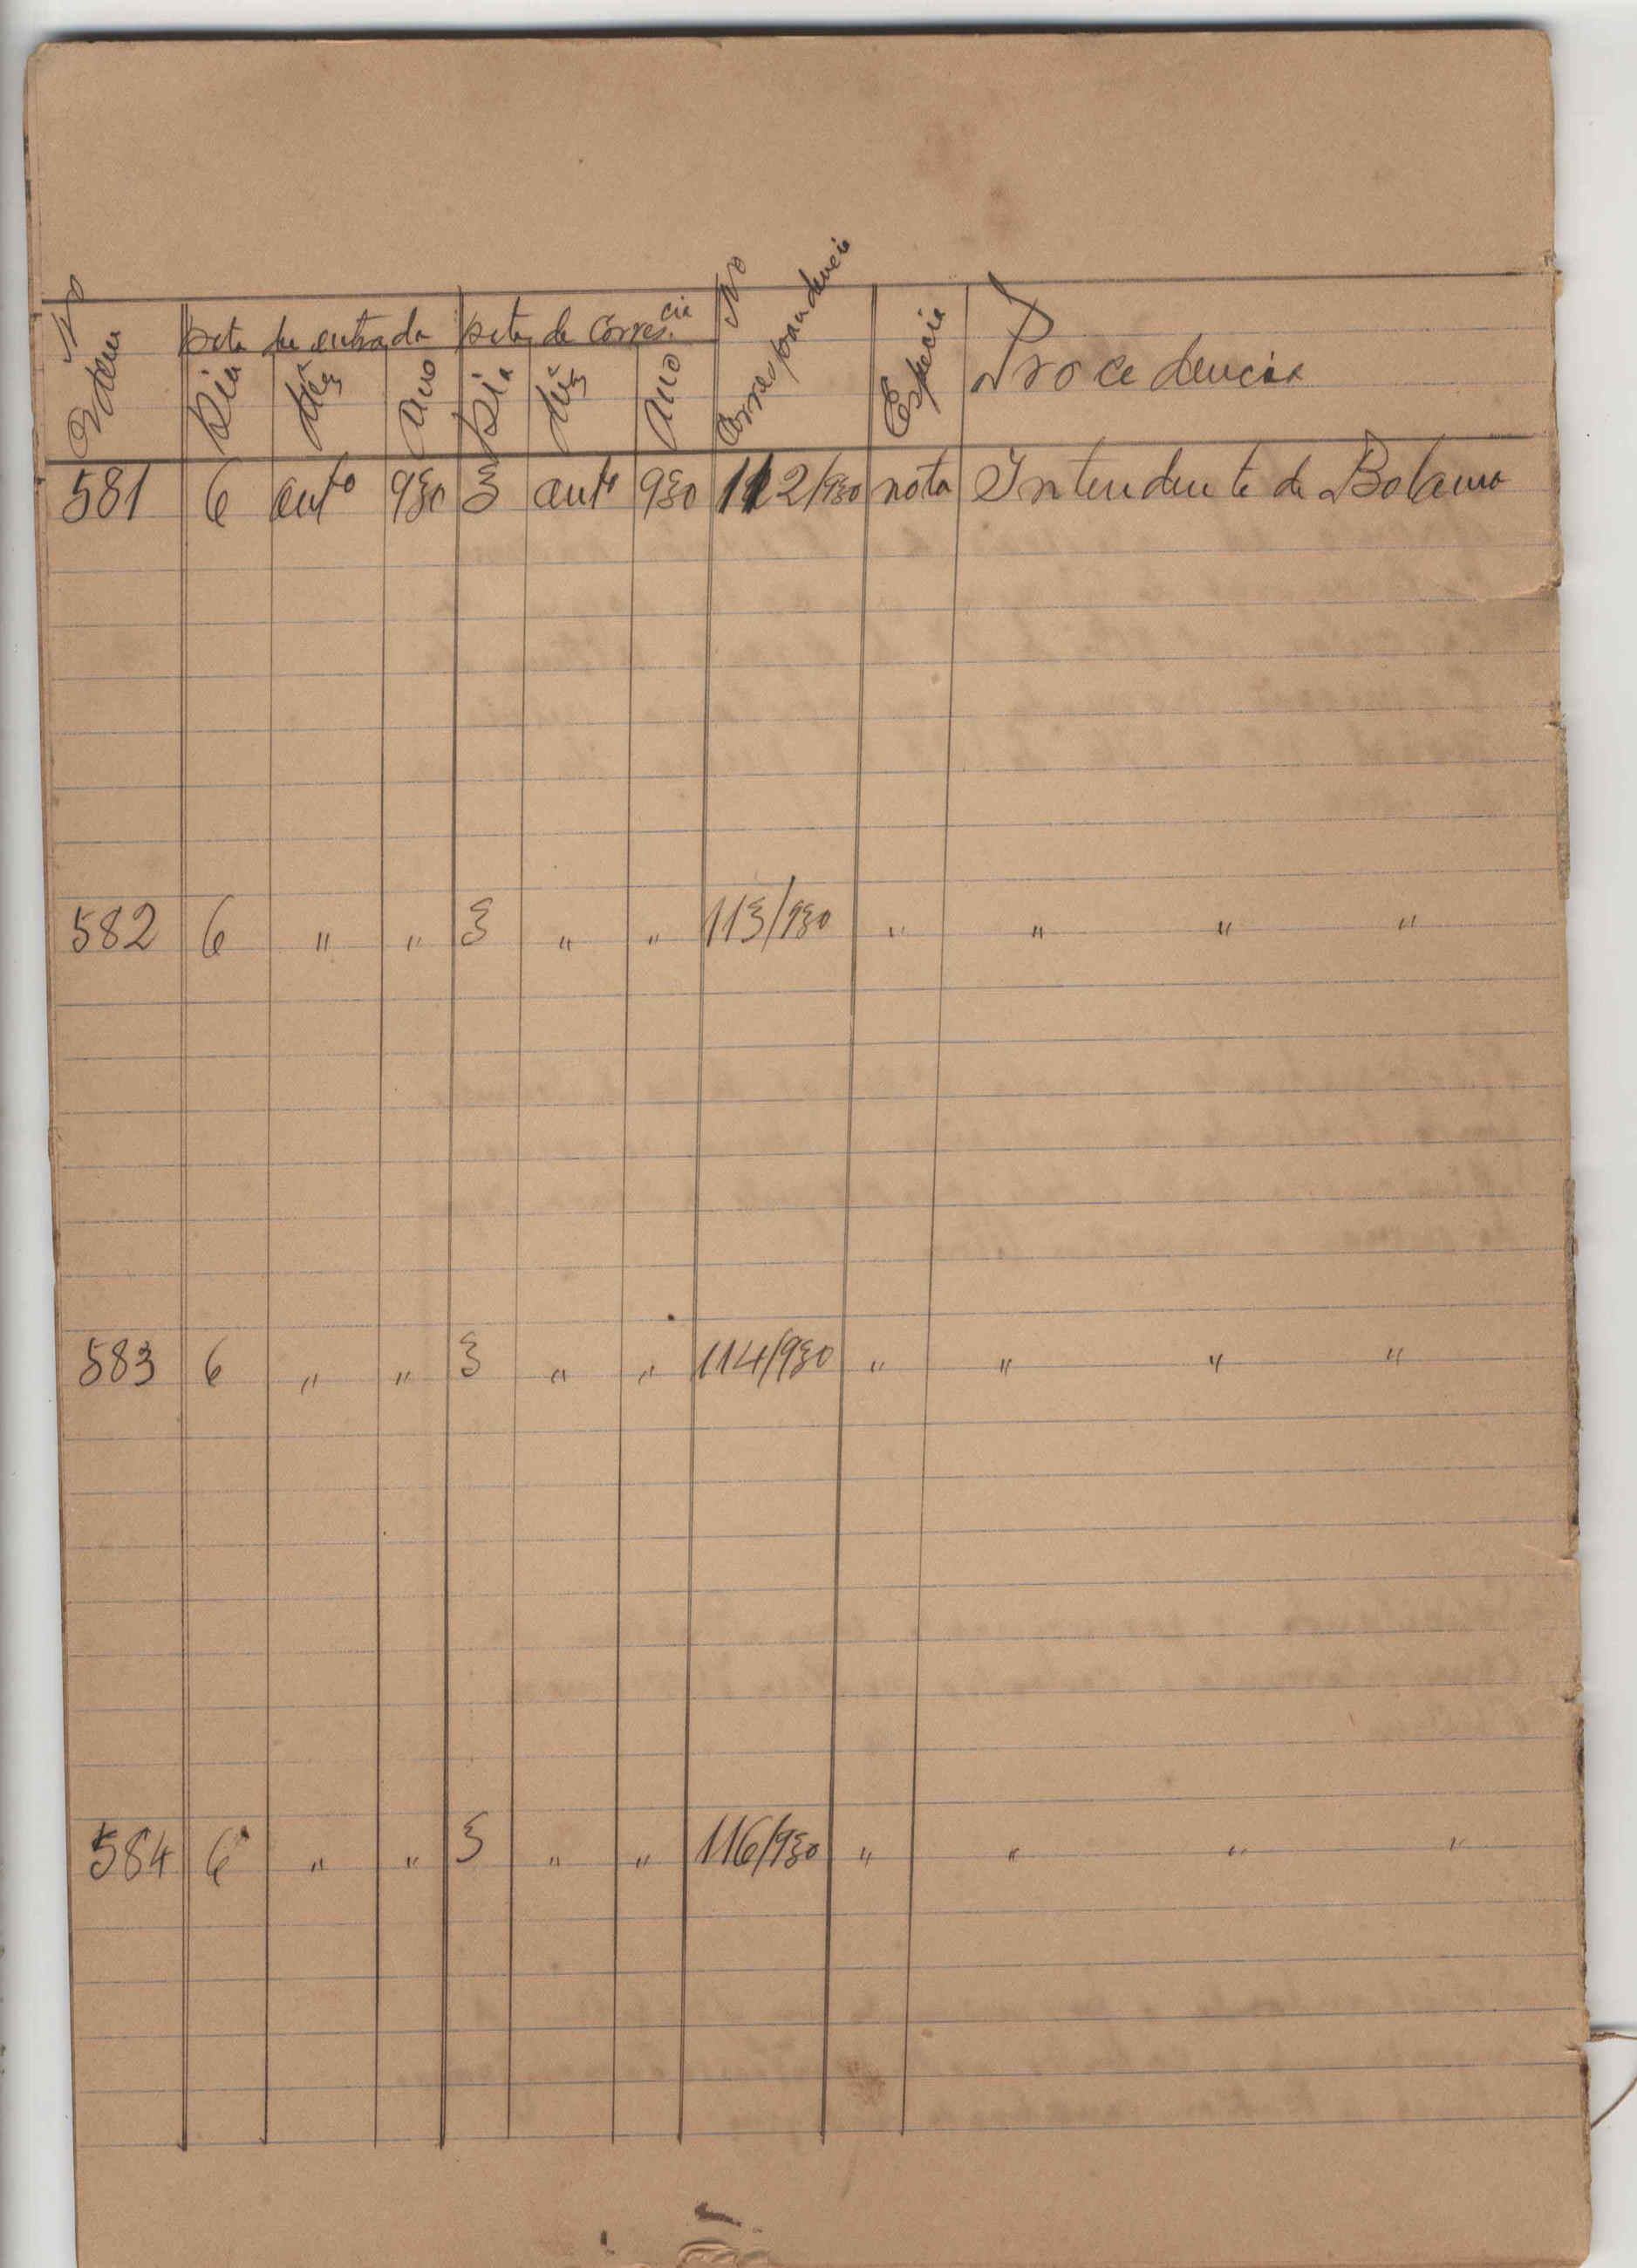 Nº Ordem | Data de entrada | Data de corres.cia | Nº Correspondencia | Especie | Procedencia
Dia | Mês | Ano | Dia | Mês | Ano
581 | 6 | outº | 930 | 3 | outº | 930 | 112/930 | nota | Intendente de Bolama
582 | 6 | " | " | 3 | " | " | 113/930 | " | " " "
583 | 6 | " | " | 3 | " | " | 114/930 | " | " " "
584 | 6 | " | " | 3 | " | " | 116/930 | " | " " "